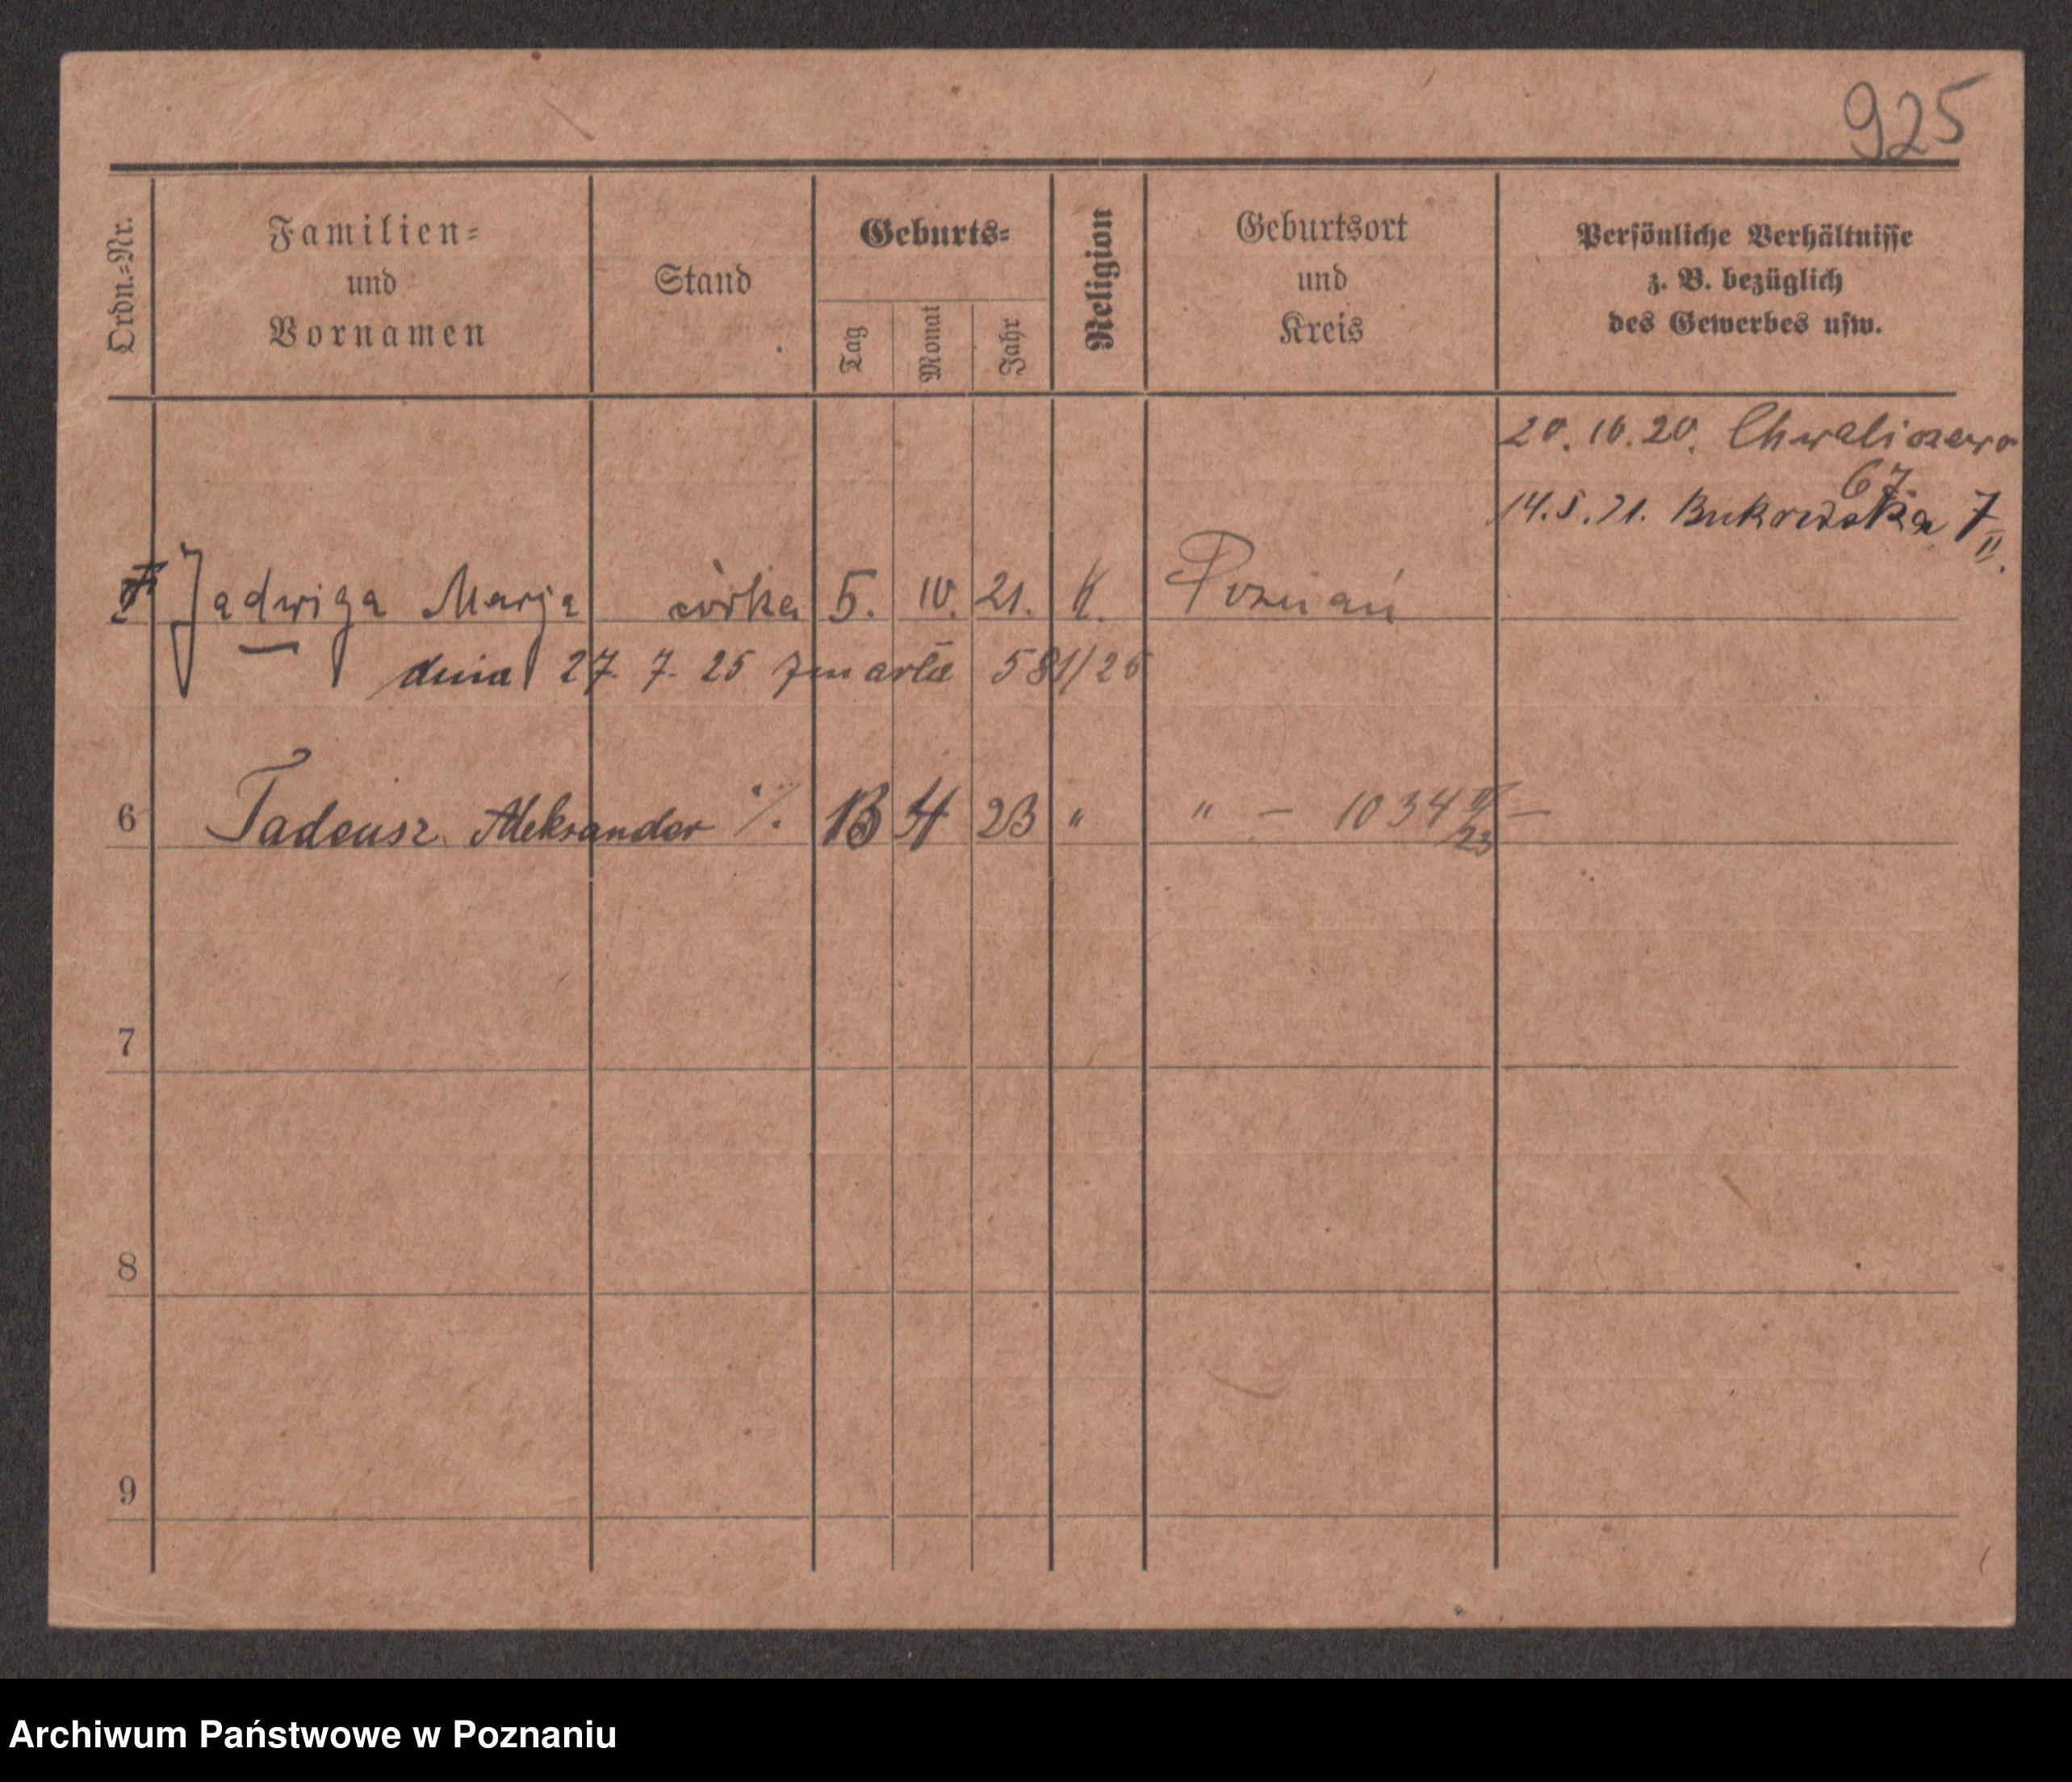 925
Ordn.-Nr.
Familien-
und
Vornamen
Stand
Geburts-
Tag
Monat
Jahr
Religion
Geburtsort
und
Kreis
Persönliche Verhältnisse
z. B. bezüglich
des Gewerbes usw.
20. 10. 20. Chwaliszewo
67.
14. 5. 21. Bukowska 7
II.
Jadwiga Marja córka 5. 10. 21. K. Poznań
dnia 27. 7. 25 zmarła 581/25
6 Tadeusz Aleksander ./. 13 4 23 " " – 1034 –
23
7
8
9
Archiwum Państwowe w Poznaniu